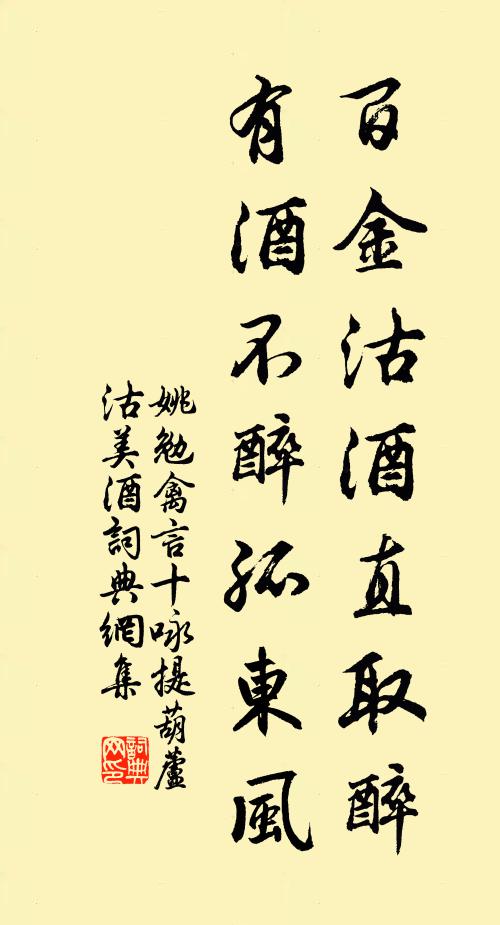 百金沽酒直取醉
有酒不醉孤東風
姚勉禽言十咏提葫蘆
沽美酒詞典網集
詞典网印